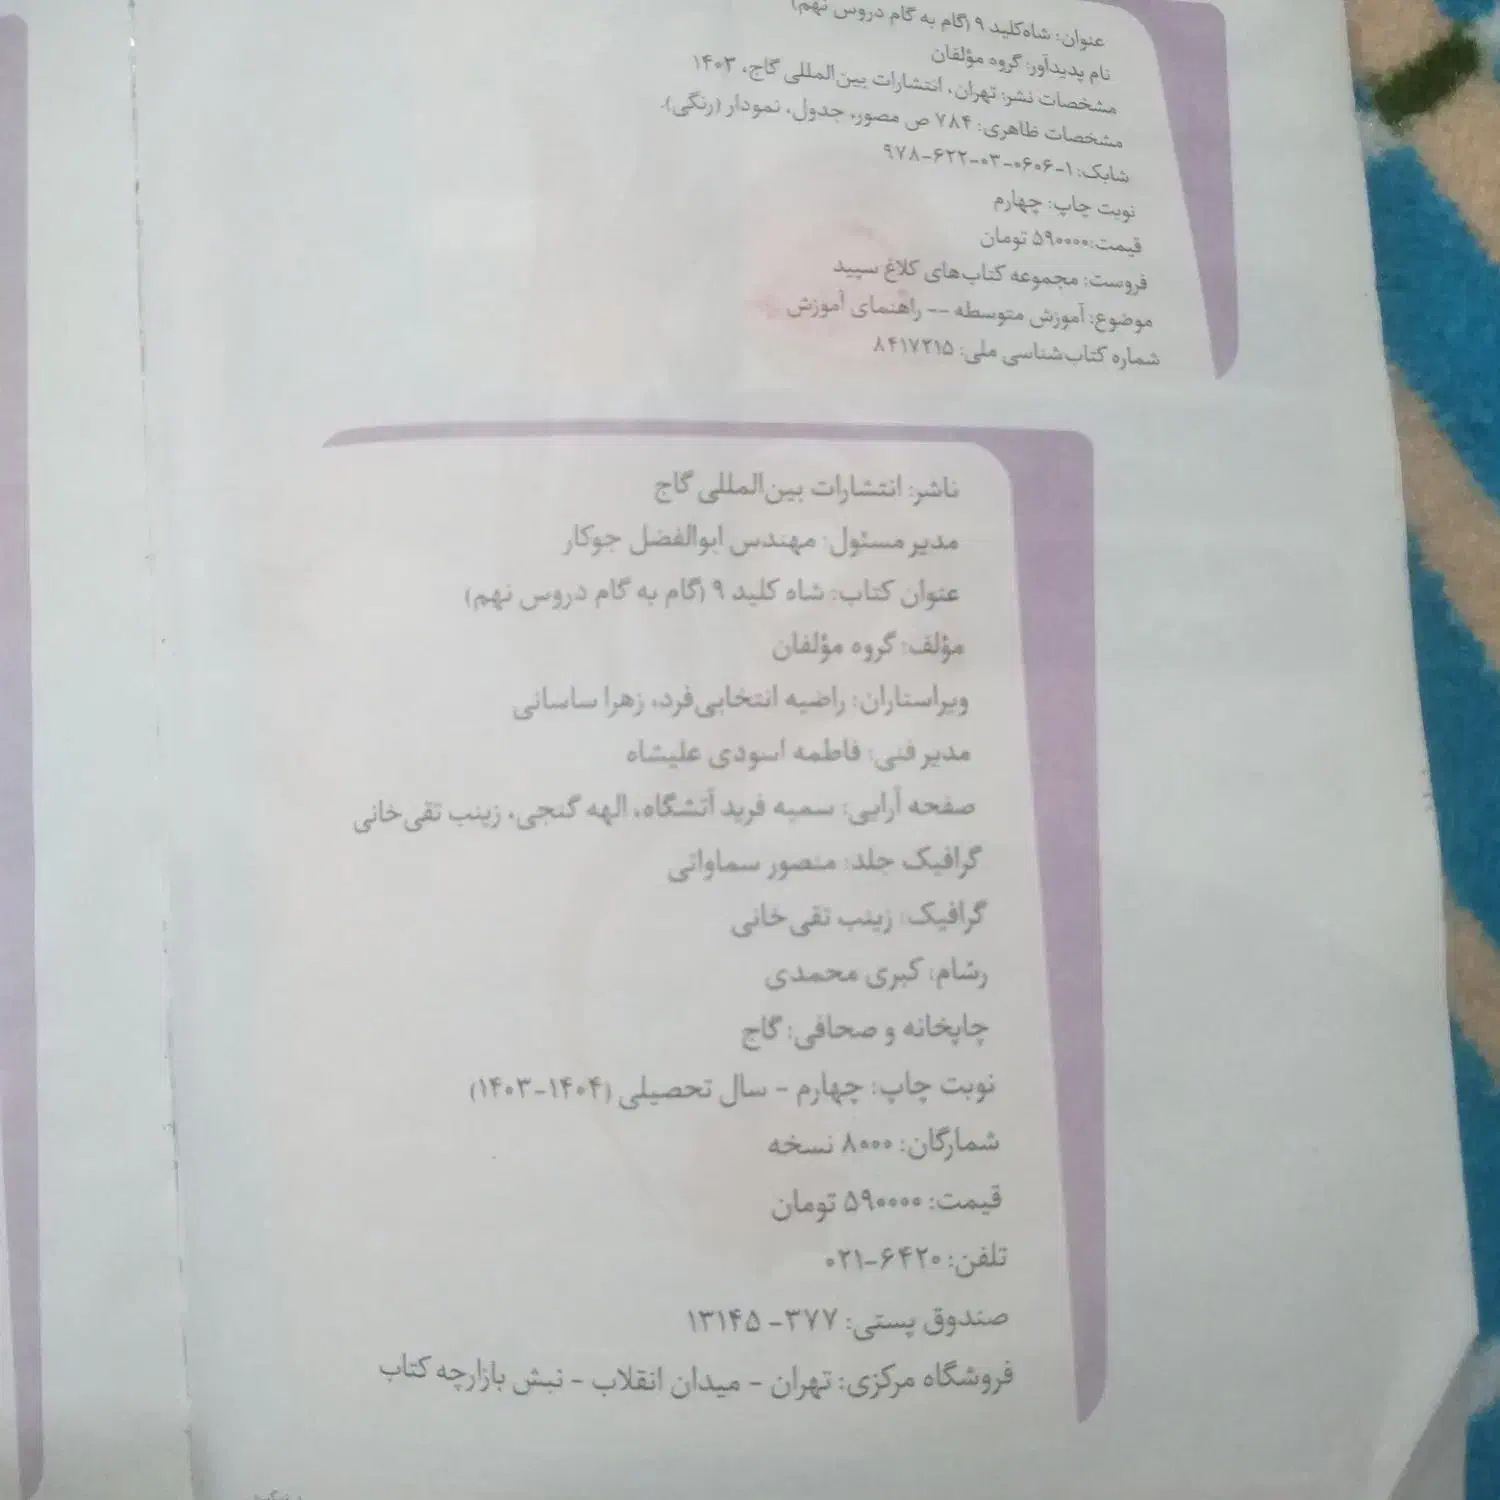 عنوان: شاه‌کلید ۹ (گام به گام دروس نهم)
نام پدیدآور: گروه مؤلفان
مشخصات نشر: تهران، انتشارات بین‌المللی گاج، ۱۴۰۳
مشخصات ظاهری: ۷۸۴ ص مصور، جدول، نمودار (رنگی).
شابک: ۱-۰۶۰۶-۰۳-۶۲۲-۹۷۸
نوبت چاپ: چهارم
قیمت: ۵۹۰۰۰۰ تومان
فروست: مجموعه کتاب‌های کلاغ سپید
موضوع: آموزش متوسطه -- راهنمای آموزش
شماره کتاب‌شناسی ملی: ۸۴۱۷۲۱۵
ناشر: انتشارات بین‌المللی گاج
مدیر مسئول: مهندس ابوالفضل جوکار
عنوان کتاب: شاه کلید ۹ (گام به گام دروس نهم)
مؤلف: گروه مؤلفان
ویراستاران: راضیه انتخابی‌فرد، زهرا ساسانی
مدیر فنی: فاطمه اسودی علیشاه
صفحه آرایی: سمیه فرید آتشگاه، الهه گنجی، زینب تقی‌خانی
گرافیک جلد: منصور سماواتی
گرافیک: زینب تقی‌خانی
رسّام: کبری محمدی
چاپخانه و صحافی: گاج
نوبت چاپ: چهارم - سال تحصیلی (۱۴۰۴-۱۴۰۳)
شمارگان: ۸۰۰۰ نسخه
قیمت: ۵۹۰۰۰۰ تومان
تلفن: ۶۴۲۰-۰۲۱
صندوق پستی: ۳۷۷- ۱۳۱۴۵
فروشگاه مرکزی: تهران - میدان انقلاب - نبش بازارچه کتاب